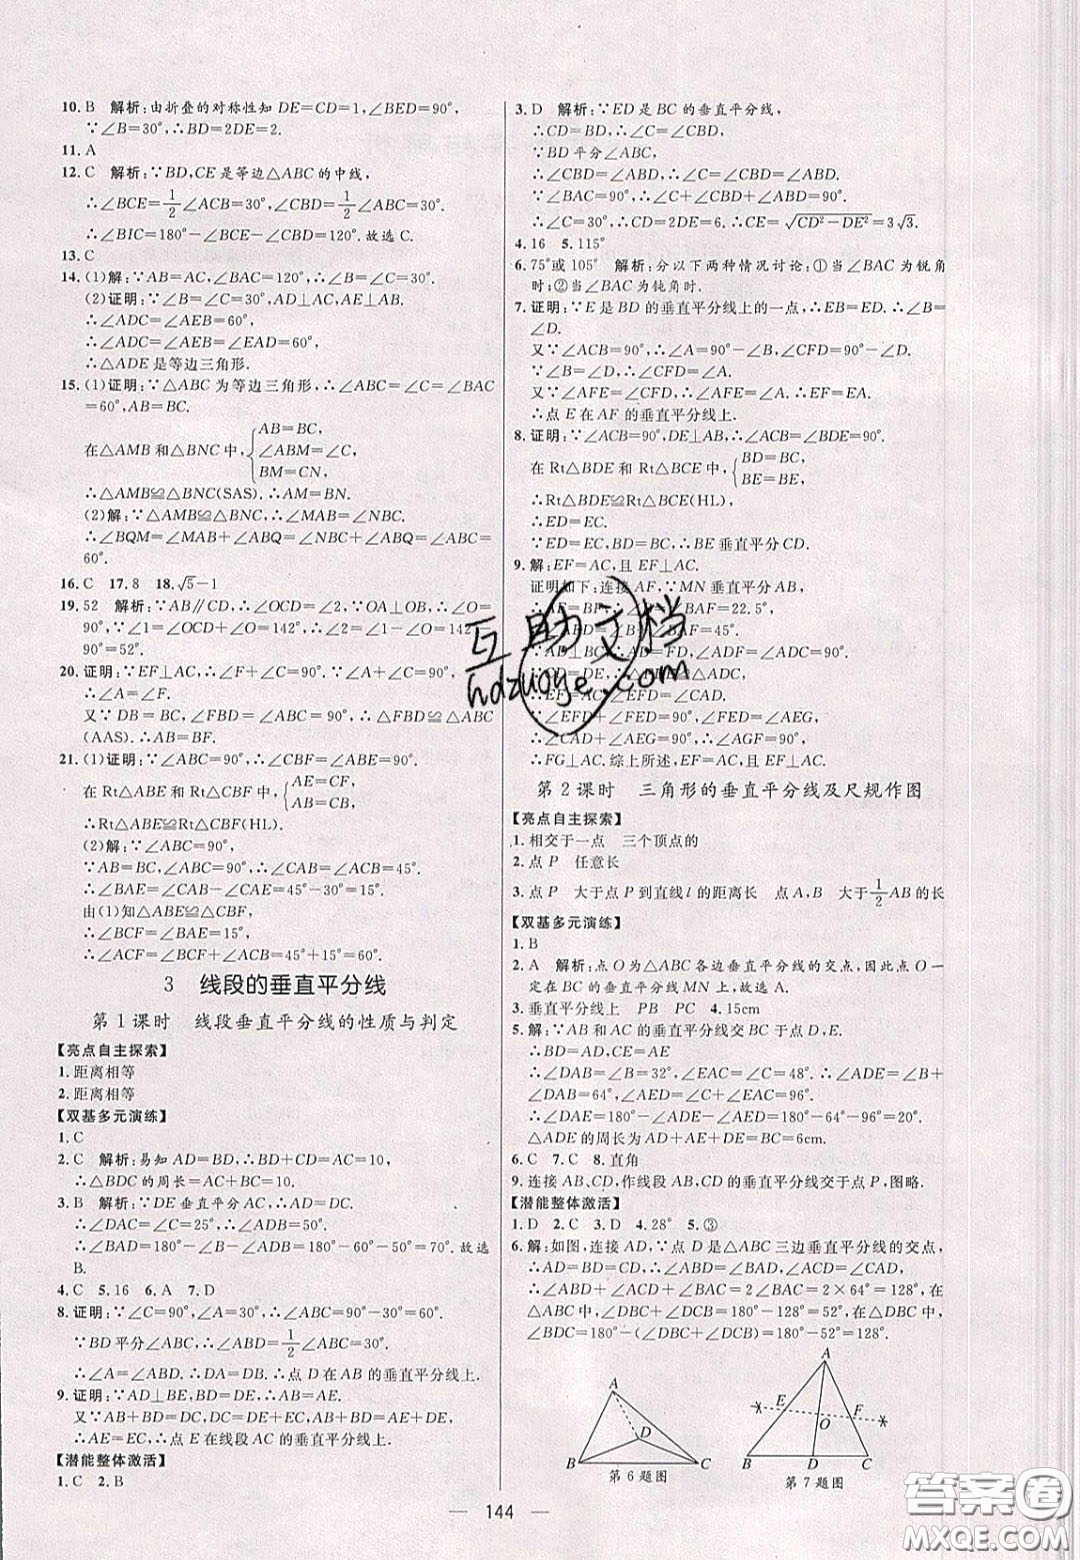 10. B 解析:由折叠的对称性知 DE=CD=1,∠BED=90°,
∵∠B=30°,∴BD=2DE=2.
11. A
12. C 解析:∵BD,CE是等边△ABC的中线,
∴∠BCE=1/2∠ACB=30°,∠CBD=1/2∠ABC=30°.
∴∠BIC=180°-∠BCE-∠CBD=120°.故选C.
13. C
14. (1)解:∵AB=AC,∠BAC=120°,∴∠B=∠C=30°.
(2)证明:∵∠B=∠C=30°,AD⊥AC,AE⊥AB.
∴∠ADC=∠AEB=60°,
∴∠ADC=∠AEB=∠EAD=60°.
∴△ADE是等边三角形.
15. (1)证明:∵△ABC为等边三角形,∴∠ABC=∠C=∠BAC
=60°,AB=BC.
在△AMB和△BNC中,{AB=BC,
∠ABM=∠C,
BM=CN,
∴△AMB≌△BNC(SAS).∴AM=BN.
(2)解:∵△AMB≌△BNC,∴∠MAB=∠NBC.
∴∠BQM=∠MAB+∠ABQ=∠NBC+∠ABQ=∠ABC
=60°.
16. C 17. 8 18. √5-1
19. 52 解析:∵AB∥CD,∴∠OCD=∠2,∵OA⊥OB,∴∠O=
90°,∵∠1=∠OCD+∠O=142°,∴∠2=∠1-∠O=142°-
90°=52°.
20. 证明:∵EF⊥AC,∴∠F+∠C=90°.∵∠A+∠C=90°,
∴∠A=∠F.
又∵DB=BC,∠FBD=∠ABC=90°,∴△FBD≌△ABC
(AAS).∴AB=BF.
21. (1)证明:∵∠ABC=90°,∴∠CBF=∠ABE=90°.
在Rt△ABE和Rt△CBF中,{AE=CF,
AB=CB.
∴Rt△ABE≌Rt△CBF(HL).
(2)解:∵∠ABC=90°,
∵AB=CB,∴∠BAC=∠BCA=45°.
∴∠BAE=∠CAB-∠CAE=45°-30°=15°.
由(1)知△ABE≌△CBF,
∴∠BCF=∠BAE=15°,
∴∠ACF=∠BCF+∠ACB=45°+15°=60°.
3 线段的垂直平分线
第1课时 线段垂直平分线的性质与判定
【亮点自主探索】
1. 距离相等
2. 距离相等
【双基多元演练】
1. C
2. C 解析:易知AD=BD,∴BD+CD=AC=10,
∴△BDC的周长=AC+BC=10.
3. B 解析:∵DE垂直平分AC,∴AD=DC.
∴∠DAC=∠C=25°,∴∠ADB=50°.
∴∠BAD=180°-∠B-∠ADB=180°-60°-50°=70°.故选
B.
4. C 5. 16 6. A 7. D
8. 证明:∵∠C=90°,∠A=30°,∴∠ABC=90°-30°=60°.
∵BD平分∠ABC,∴∠ABD=1/2∠ABC=30°.
∴∠A=∠ABD.∴DA=DB.∴点D在AB的垂直平分线上.
9. 证明:∵AD⊥BE,BD=DE,∴AB=AE.
又∵AB+BD=DC,DC=DE+EC,∴AB+BD=DE+EC,
∴AE=EC,∴点E在线段AC的垂直平分线上.
【潜能整体激活】
1. C 2. B
3. D 解析:∵ED是BC的垂直平分线,
∴CD=BD,∴∠C=∠CBD.
∵BD平分∠ABC,
∴∠C=∠CBD=∠ABD.
∵∠BAC=90°,∴∠C+∠CBD+∠ABD=90°.
∴∠C=30°,∴CD=2DE=6.∴CE=√CD²-DE²=3√3.
4. 16 5. 115°
6. 75°或105° 解析:分以下两种情况讨论:①当∠BAC为锐角
时;②当∠BAC为钝角时.
7. 证明:∵E是BD的垂直平分线上的一点,∴EB=ED.∴∠B=
∠D.
又∵∠ACB=90°,∴∠A=90°-∠B,∠CFD=90°-∠D.
∵∠B=∠D,∴∠CFD=∠A.
又∵∠AFE=∠CFD,∴∠AFE=∠A.∴EF=EA.
∴点E在AF的垂直平分线上.
8. 证明:∵∠ACB=90°,DE⊥AB,∴∠ACB=∠BDE=90°.
在Rt△BDE和Rt△BCE中,{BD=BC,
BE=BE.
∴Rt△BDE≌Rt△BCE(HL).
∴ED=EC.
∵ED=EC,BD=BC,∴BE垂直平分CD.
9. 解:EF=AC,且EF⊥AC.
证明如下:连接AF,∵MN垂直平分AB,
∴AF=BF,∴∠B=∠BAF=22.5°.
∴∠AFD=∠B+∠BAF=45°.
∵AD⊥BC,
∵CD=DE,△ADC,
∴AC=EF,∠EFD=∠CAD.
∵∠EFD+∠FED=90°,∠FED=∠AEG,
∴∠CAD+∠AEG=90°,∴∠AGF=90°.
∴FG⊥AC.综上所述,EF=AC,EF⊥AC.
第2课时 三角形的垂直平分线及尺规作图
【亮点自主探索】
1. 相交于一点 三个顶点的
2. 点P 任意长
3. 点P 大于点P到直线l的距离长 点A,B 大于1/2AB的长
【双基多元演练】
1. B
2. A 解析:点O为△ABC各边垂直平分线的交点,因此点O一
定在BC的垂直平分线MN上,故选A.
3. 垂直平分线上 PB PC 4. 15cm
5. 解:∵AB和AC的垂直平分线交BC于点D,E.
∴BD=AD,CE=AE
∴∠DAB=∠B=32°,∠EAC=∠C=48°.∴∠ADE=∠B+
∠DAB=64°,∠AED=∠EAC+∠C=96°.
∴∠DAE=180°-∠ADE-∠AED=180°-64°-96°=20°.
△ADE的周长为AD+AE+DE=BC=6cm.
6. C 7. C 8. 直角
9. 连接AB,CD,作线段AB,CD的垂直平分线交于点P,图略.
【潜能整体激活】
1. D 2. C 3. D 4. 28° 5. ③
6. 解:如图,连接AD,∵点D是△ABC三边垂直平分线的交点,
∴AD=BD=CD,∴∠ABD=∠BAD,∠ACD=∠CAD,
∴∠ABD+∠ACD+∠BAC=2∠BAC=2×64°=128°,在
△ABC中,∠DBC+∠DCB=180°-128°=52°,在△DBC中,
∠BDC=180°-(∠DBC+∠DCB)=180°-52°=128°.
A
D
B
C
第6题图
A
E
F
O
B
D
C
第7题图
144
互助文档
hdzuoye.com
答案圈
MXQE.COM